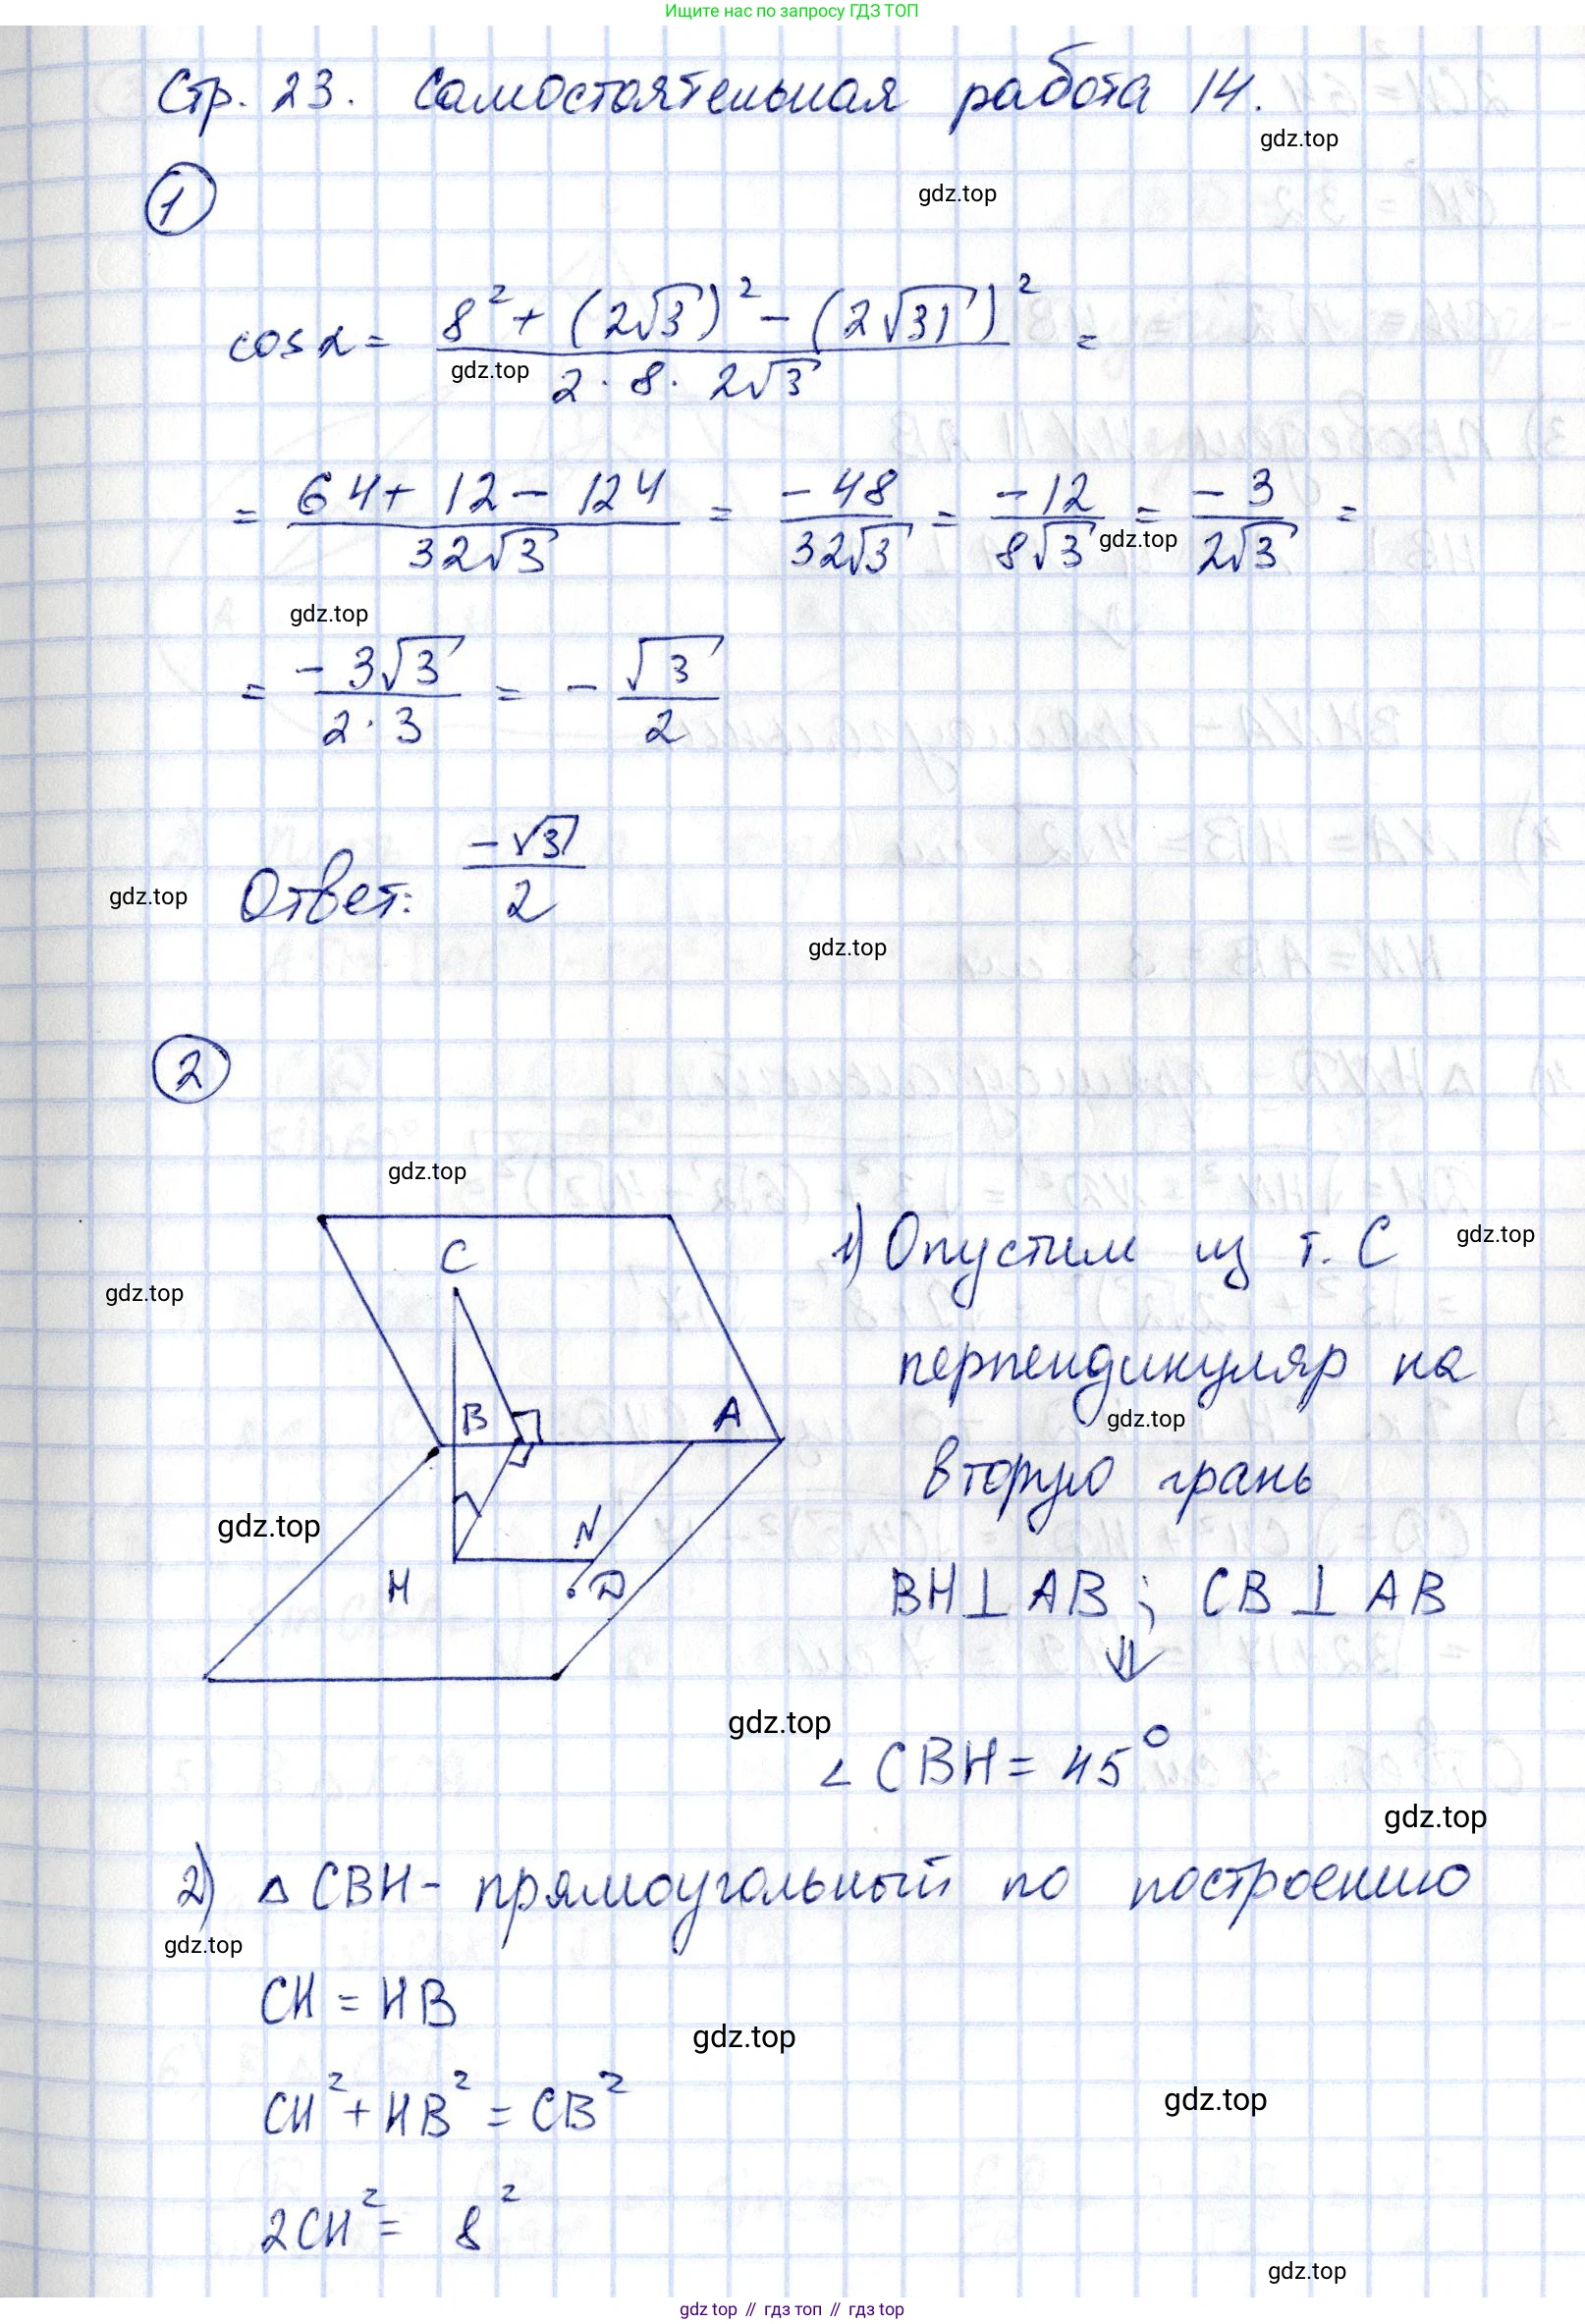 Ищите нас по запросу ГДЗ ТОП
Стр. 23. Самостоятельная работа 14.
gdz.top
1
gdz.top
cos α = (8² + (2√3)² − (2√31)²) / (2 · 8 · 2√3) =
gdz.top
= (64 + 12 − 124) / (32√3) = −48 / (32√3) = −12 / (8√3) = −3 / (2√3) =
gdz.top
gdz.top
= −3√3 / (2 · 3) = − √3 / 2
Ответ: −√3 / 2
gdz.top
gdz.top
2
gdz.top
1) Опустим из т. C
gdz.top
C
gdz.top
перпендикуляр на
gdz.top
B A
вторую грань
gdz.top
N
H D
BH ⊥ AB ; CB ⊥ AB
⇓
gdz.top
∠ CBH = 45°
gdz.top
2) Δ CBH - прямоугольный по построению
gdz.top
CH = HB
gdz.top
CH² + HB² = CB²
gdz.top
2CH² = 8²
gdz.top
gdz top // гдз топ // гдз top